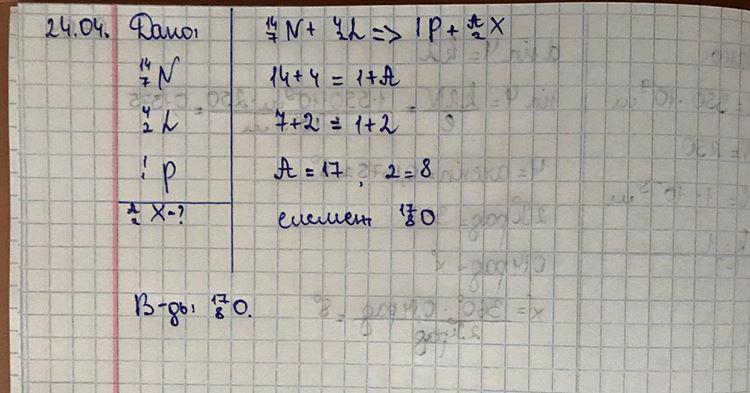 24.04. Дано:
¹⁴₇N
⁴₂α
¹₁p
ᴬ₂X-?
¹⁴₇N + ⁴₂α => ¹₁p + ᴬ₂X
14+4 = 1+A
7+2 = 1+2
A = 17, 2 = 8
елемент ¹⁷₈O
В-дь: ¹⁷₈O.